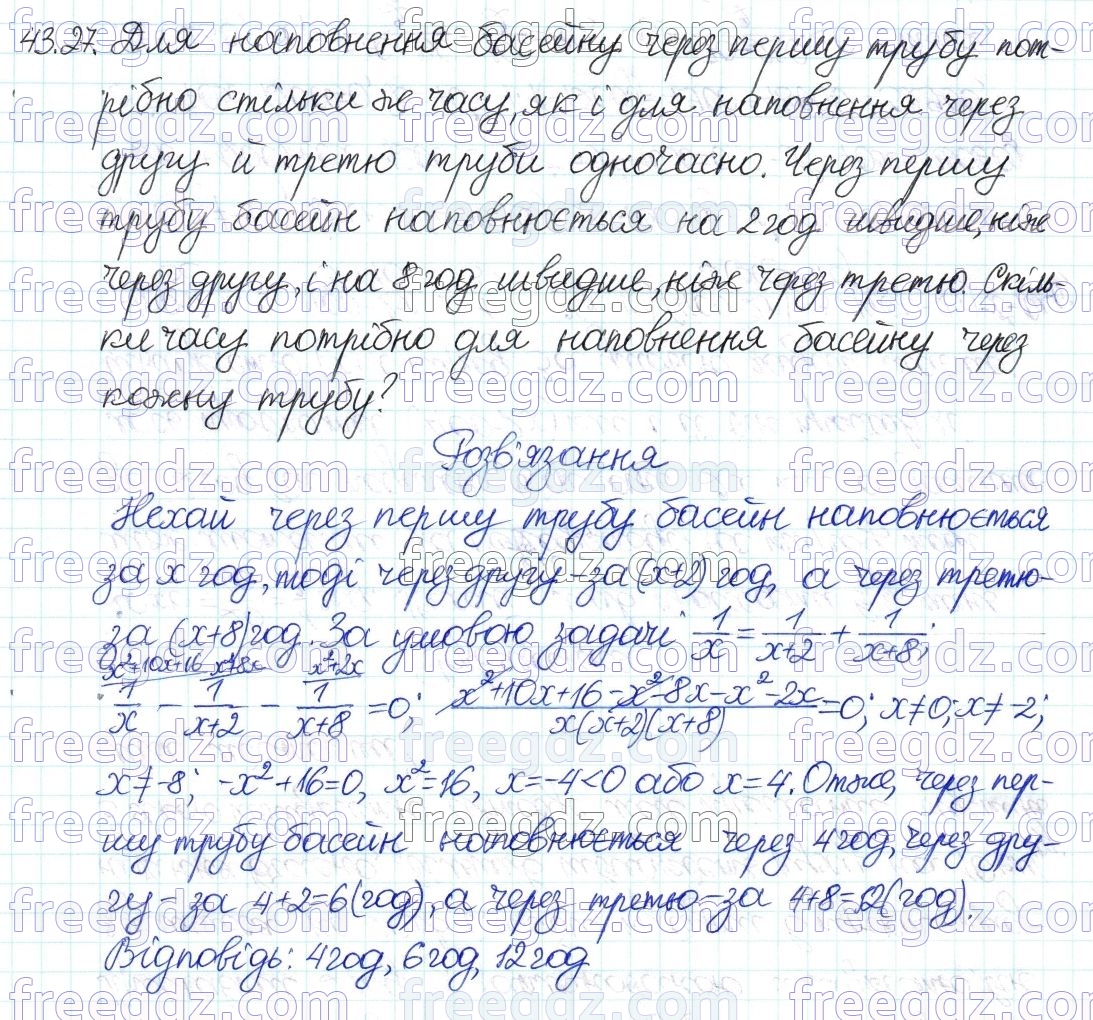 43.27. Для наповнення басейну через першу трубу пот-
рібно стільки ж часу, як і для наповнення через
другу й третю труби одночасно. Через першу
трубу басейн наповнюється на 2 год швидше, ніж
через другу, і на 8 год швидше, ніж через третю. Скіль-
ки часу потрібно для наповнення басейну через
кожну трубу?
Розв'язання
Нехай через першу трубу басейн наповнюється
за x год, тоді через другу – за (x+2) год, а через третю –
за (x+8) год. За умовою задачі 1/x = 1/(x+2) + 1/(x+8);
x²+10x+16 x²+8x x²+2x
1/x − 1/(x+2) − 1/(x+8) = 0; (x²+10x+16−x²−8x−x²−2x)/(x(x+2)(x+8)) = 0; x≠0; x≠-2;
x≠-8; -x²+16=0, x²=16, x=-4<0 або x=4. Отже, через пер-
шу трубу басейн наповнюється через 4 год, через дру-
гу – за 4+2=6 (год), а через третю – за 4+8=12 (год).
Відповідь: 4 год, 6 год, 12 год
freegdz.com